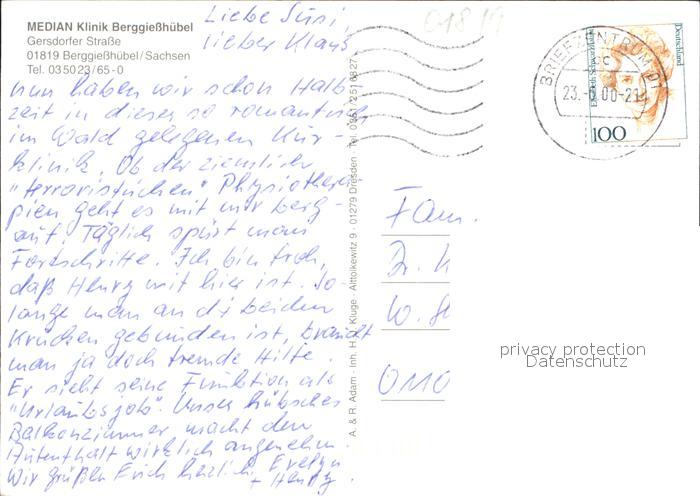 MEDIAN Klinik Berggießhübel
Gersdorfer Straße
01819 Berggießhübel/Sachsen
Tel. 03 50 23 / 65 - 0
Liebe Susi,
lieber Klaus,
nun haben wir schon Halb-
zeit in dieser so romantisch
im Wald gelegenen Kur-
klinik. Ob der ziemlich
"terroristischen" Physiothera-
pien geht es mit mir berg-
auf! Täglich spürt man
Fortschritte. Ich bin froh,
daß Henry mit hier ist. So-
lange man an die beiden
Krücken gebunden ist, braucht
man ja doch fremde Hilfe.
Er sieht seine Funktion als
"Urlaubsjob". Unser hübsches
Balkonzimmer macht den
Aufenthalt wirklich angenehm.
Wir grüßen Euch herzlich, Evelyn
+ Henry.
A. & R. Adam · Inh. H. J. Kluge · Alttolkewitz 9 · 01279 Dresden · Tel. 0351/2516827
01819
BRIEFZENTRUM 01
23.-0.00-21
Deutschland
100
Fam.
Dr. K
W.-
010
privacy protection
Datenschutz